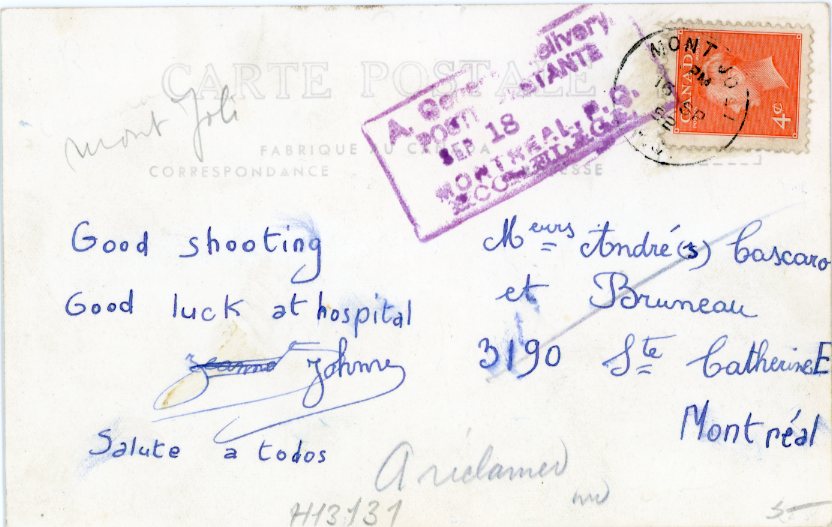 CARTE POSTALE
Mont Joli
FABRIQUE AU CANADA
CORRESPONDANCE
A. General Delivery
POSTE RESTANTE
SEP 18
MONTREAL, P.Q.
MONT JOLI
PM
16 SP
52
CANADA
4¢
Good shooting
Good luck at hospital
Johnny
Salute a todos
Meurs André(s) Cascaro
et Bruneau
3190 Ste Catherine E
Montréal
A réclamer
H13131
5-